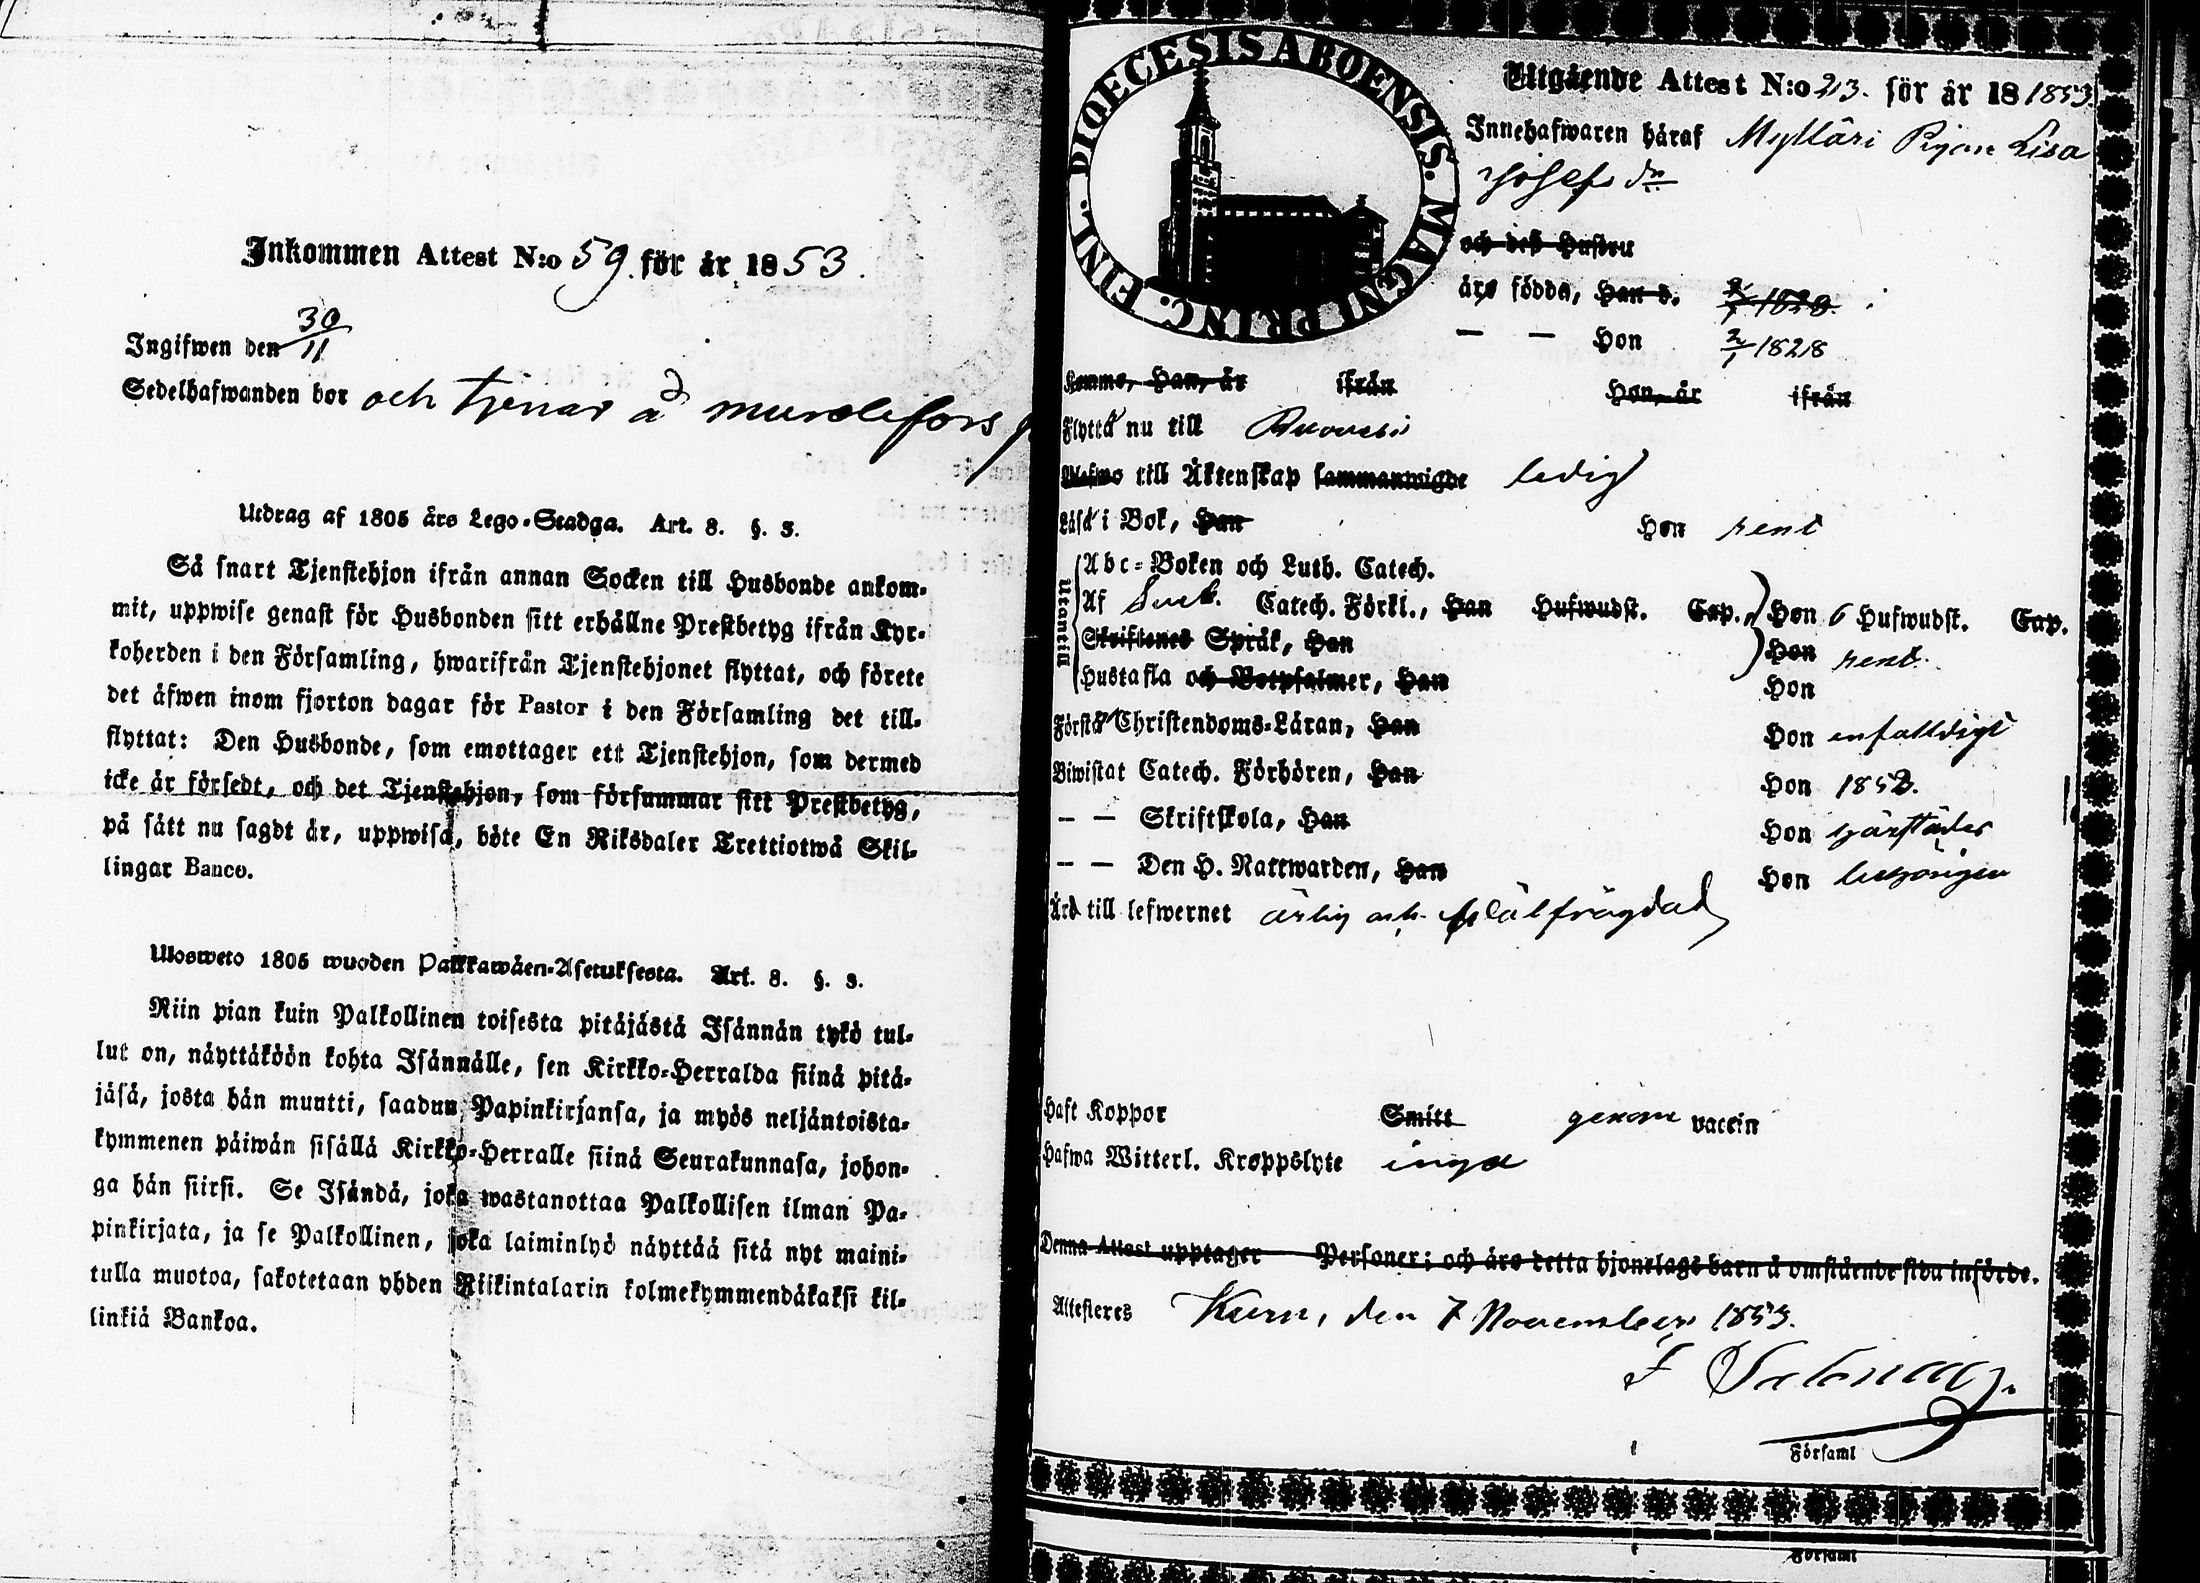 Inkommen Attest N:o 59. för år 1853.
Ingifwen den 30/11
Sedelhafwanden bor och tjenar å
Utdrag af 1805 års Lego-Stadga. Art. 8. §. 3.
Så snart Tjenstehjon ifrån annan Socken till Husbonde ankom-
mit, uppwise genast för Husbonden sitt erhållne Prestbetyg ifrån Kyr-
koherden i den Församling, hwarifrån Tjenstehjonet flyttat, och förete
det äfwen inom fjorton dagar för Pastor i den Församling det till-
flyttat: Den Husbonde, som emottager ett Tjenstehjon, som dermed
icke är försedt, och det Tjenstehjon, som försummar sitt Prestbetyg,
på sätt nu sagdt är, uppwisa, böte En Riksdaler Trettiotwå Skil-
lingar Banco.
Ulosweto 1805 wuoden Palkkawäen-Asetuksesta. Art. 8. §. 3.
Niin pian kuin Palkollinen toisesta pitäjästä Isännän tykö tul-
lut on, näyttäköön kohta Isännälle, sen Kirkko-Herralda siinä pitä-
jäsä, josta hän muutti, saadun Papinkirjansa, ja myös neljäntoista-
kymmenen päiwän sisällä Kirkko-Herralle siinä Seurakunnasa, johon-
ga hän siirsi. Se Isändä, joka wastanottaa Palkollisen ilman Pa-
pinkirjata, ja se Palkollinen, joka laiminlyö näyttää sitä nyt maini-
tulla muotoa, sakotetaan yhden Riikintalarin kolmekymmendäkaksi kil-
linkiä Bankoa.
DIOECESIS ABOENSIS. MAGNI PRINC. FINL.
Utgående Attest N:o 23. för år 18 1853.
Innehafwaren häraf Mylläri Pigan Lisa
Josefs dr
och deß Hustru
äro födde, Han d. 2/1 1828.
— — Hon 2/1 1828
Komme, Han, år ifrån Hon, år ifrån
Flyttå nu till
till Äktenskap sammanwigde ledig
Läså i Bok, Han Hon rent
Utantill
Abc-Boken och Luth. Catech.
Af Sveb. Catech. Förkl., Han Hufwudst. Cap., Hon 6 Hufwudst. Cap.
Skriftenes Språk, Han Hon rent.
Hustafla och Botpsalmer, Han Hon
Förstå Christendoms-Läran, Han Hon enfalldigt
Biwistat Catech. Förhören, Han Hon 1852.
— — Skriftskola, Han Hon
— — Den H. Nattwarden, Han Hon behörigen
Äro till lefwernet ärlig och wälfrägdad
Haft Koppor Smitt genom vaccin
Hafwa Witterl. Kroppslyte inga
Denna Attest upptager Personer; och äro detta hjonelags barn å omstående sida införde.
Attesteres Kumo, den 7 November 1853.
F Salonius.
Församl
Församl